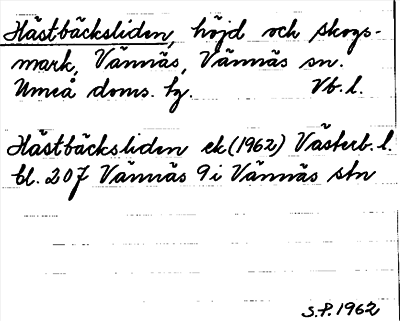 Hästbäcksliden, höjd och skogs-
mark, Vännäs, Vännäs sn.
Umeå doms. hg. Vb. l.
Hästbäcksliden ek (1962) Västerb. l.
bl. 207 Vännäs 9 i Vännäs stn
S.P. 1962